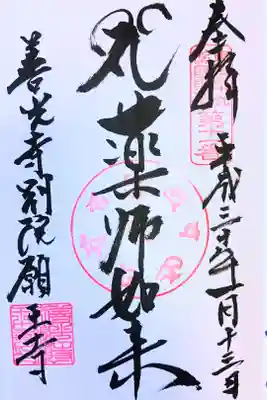 奉拝
平成三十年一月十三日
薬師如来
善光寺別院願王寺